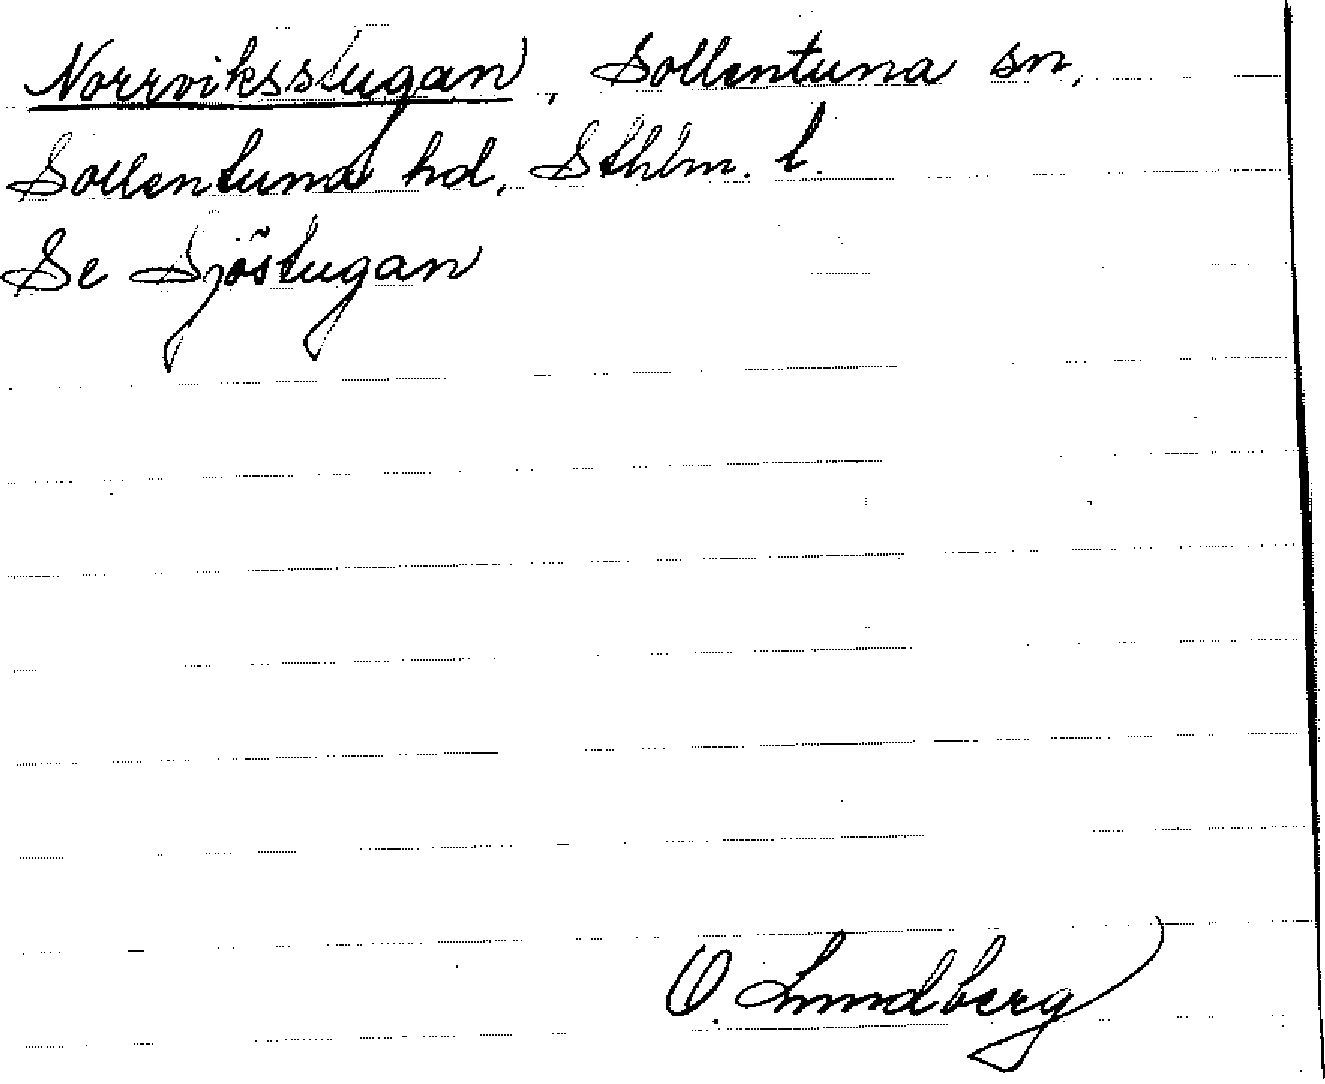 Norrviksstugan, Sollentuna sn,
Sollentuna hd, Sthlm. l.
Se Sjöstugan
O. Lundberg